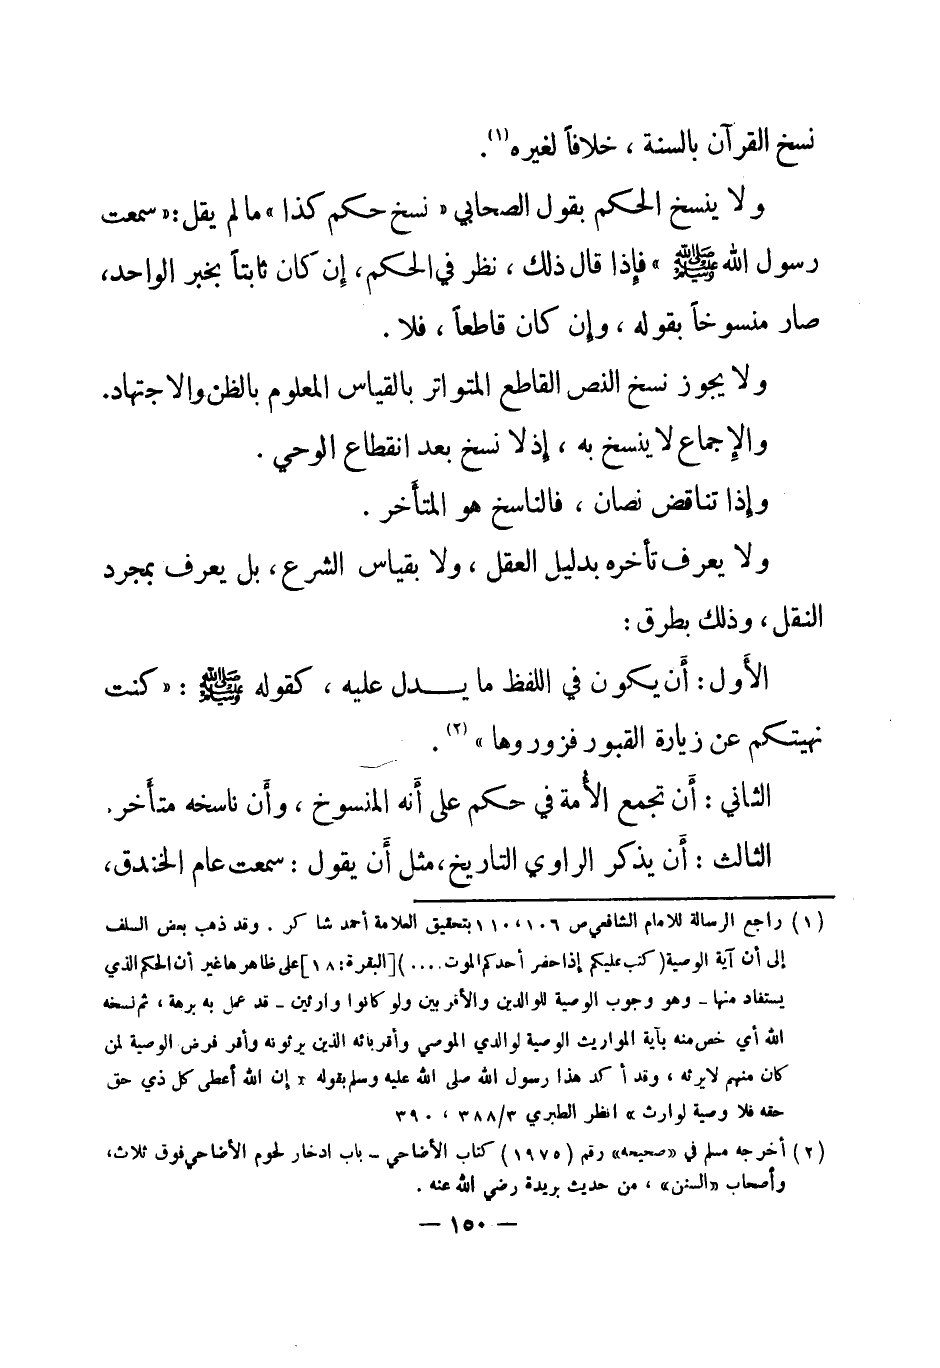 نسخ القرآن بالسنة ، خلافاً لغيره(١).
ولا ينسخ الحكم بقول الصحابي « نسخ حكم كذا » ما لم يقل : « سمعت
رسول الله ﷺ » فإذا قال ذلك ، نظر في الحكم ، إن كان ثابتاً بخبر الواحد،
صار منسوخاً بقوله ، وإن كان قاطعاً ، فلا .
ولا يجوز نسخ النص القاطع المتواتر بالقياس المعلوم بالظن والاجتهاد.
والإجماع لا ينسخ به ، إذ لا نسخ بعد انقطاع الوحي .
وإذا تناقض نصان ، فالناسخ هو المتأخر .
ولا يعرف تأخره بدليل العقل ، ولا بقياس الشرع ، بل يعرف بمجرد
النقل ، وذلك بطرق :
الأول : أن يكون في اللفظ ما يـــدل عليه ، كقوله ﷺ : « كنت
نهيتكم عن زيارة القبور فزوروها » (٢) .
الثاني : أن تجمع الأمة في حكم على أنه المنسوخ ، وأن ناسخه متأخر.
الثالث : أن يذكر الراوي التاريخ ، مثل أن يقول : سمعت عام الخندق،
(١) راجع الرسالة للامام الشافعي ص ١٠٦، ١١٠ بتحقيق العلامة أحمد شاكر . وقد ذهب بعض السلف
إلى أن آية الوصية ( كتب عليكم إذا حضر أحدكم الموت .... ) [البقرة : ١٨] على ظاهرها غير أن الحكم الذي
يستفاد منها - وهو وجوب الوصية للوالدين والأقربين ولو كانوا وارثين - قد عمل به برهة ، ثم نسخه
الله أي خص منه بآية المواريث الوصية لوالدي الموصي وأقربائه الذين يرثونه وأقر فرض الوصية لمن
كان منهم لا يرثه ، وقد أكد هذا رسول الله صلى الله عليه وسلم بقوله « إن الله أعطى كل ذي حق
حقه فلا وصية لوارث » انظر الطبري ٣٨٨/٣ ، ٣٩٠
(٢) أخرجه مسلم في «صحيحه» رقم (١٩٧٥) كتاب الأضاحي - باب ادخار لحوم الأضاحي فوق ثلاث ،
وأصحاب «السنن» ، من حديث بريدة رضي الله عنه .
— ١٥٠ —